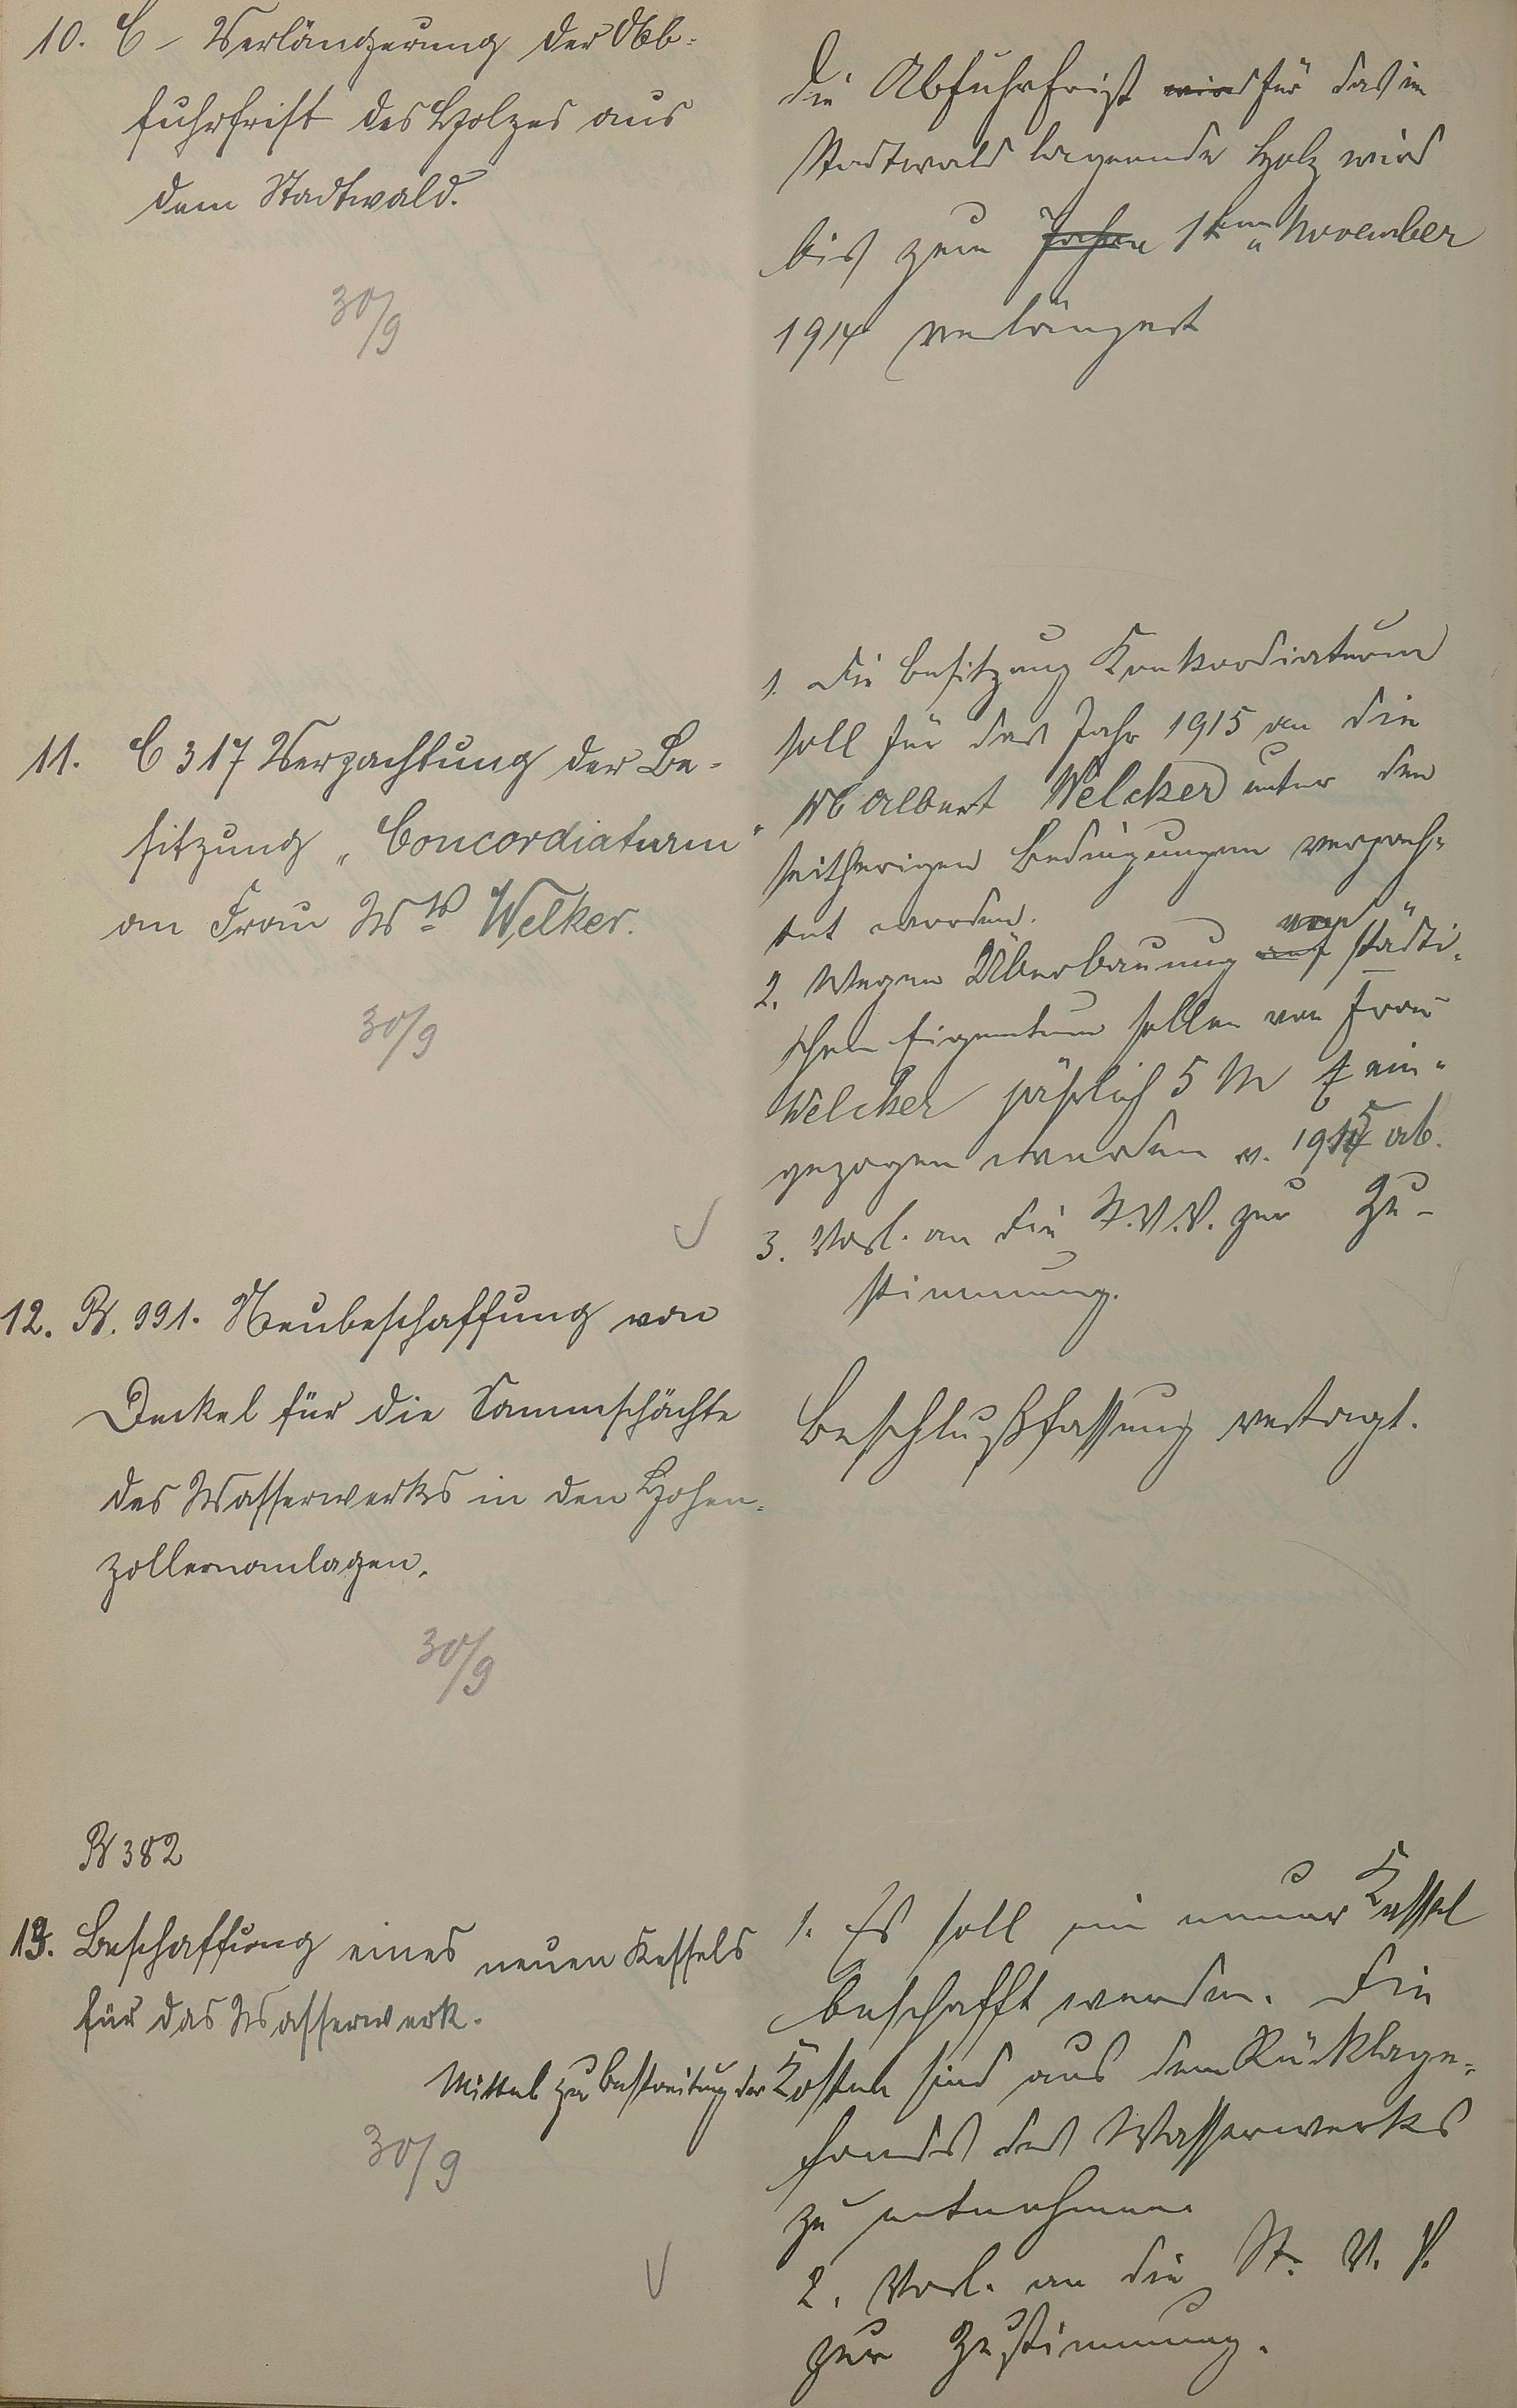 10. C - Verlängerung der Ab-
fuhrfrist des Holzes aus
dem Stadtwald.
30/9
Die Abfuhrfrist wird für das im
Stadtwald lagernde Holz wird
bis zum 1ten November
1914 verlängert
11. C 317 Verpachtung der Be-
sitzung „Concordiaturm"
an Frau Ww Welker.
30/9
1. Die Besitzung Konkordiaturm
soll für das Jahr 1915 an die
Ww Albert Welcker unter den
seitherigen Bedingungen verpach-
tet werden.
2. Wegen Überbauung auf von städti-
schem Eigentum sollen von Frau
Welcker jährlich 5 M ein-
gezogen werden v. 1915 ab.
3. Vorl. an die St.V.V. zur Zu-
stimmung.
12. B. 991. Neubeschaffung von
Deckel für die Sammelschächte
des Wasserwerks in den Hohen-
zollernanlagen.
30/9
Beschlußfassung vertagt.
B 382
13. Beschaffung eines neuen Kessels
für das Wasserwerk.
30/9
1. Es soll ein neuer Kessel
beschafft werden. Die
Mittel zu Bestreitung der Kosten sind aus dem Rücklage-
fonds des Wasserwerks
zu entnehmen
2. Vorl. an die St. V. V.
zur Zustimmung.